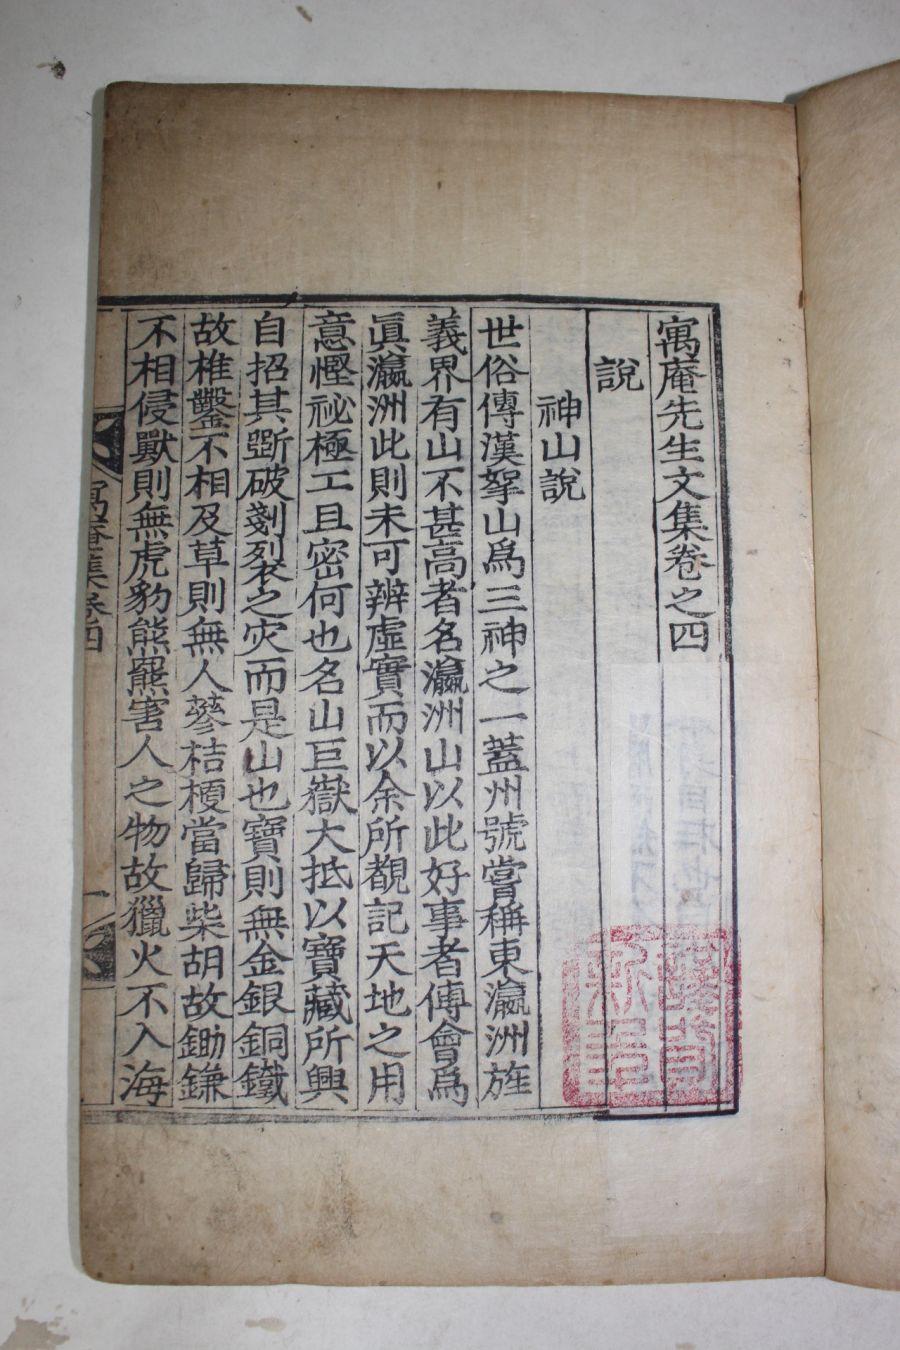 寓庵先生文集卷之四
說
神山說
世俗傳漢拏山爲三神之一蓋州號嘗稱東瀛洲旌
義界有山不甚高者名瀛洲山以此好事者傅會爲
眞瀛洲此則未可辨虛實而以余所覩記天地之用
意慳祕極工且密何也名山巨嶽大抵以寶藏所興
自招其斲破剗裂之灾而是山也寶則無金銀銅鐵
故椎鑿不相及草則無人蔘桔梗當歸柴胡故鋤鎌
不相侵獸則無虎豹熊羆害人之物故獵火不入海
寓庵集卷四
一